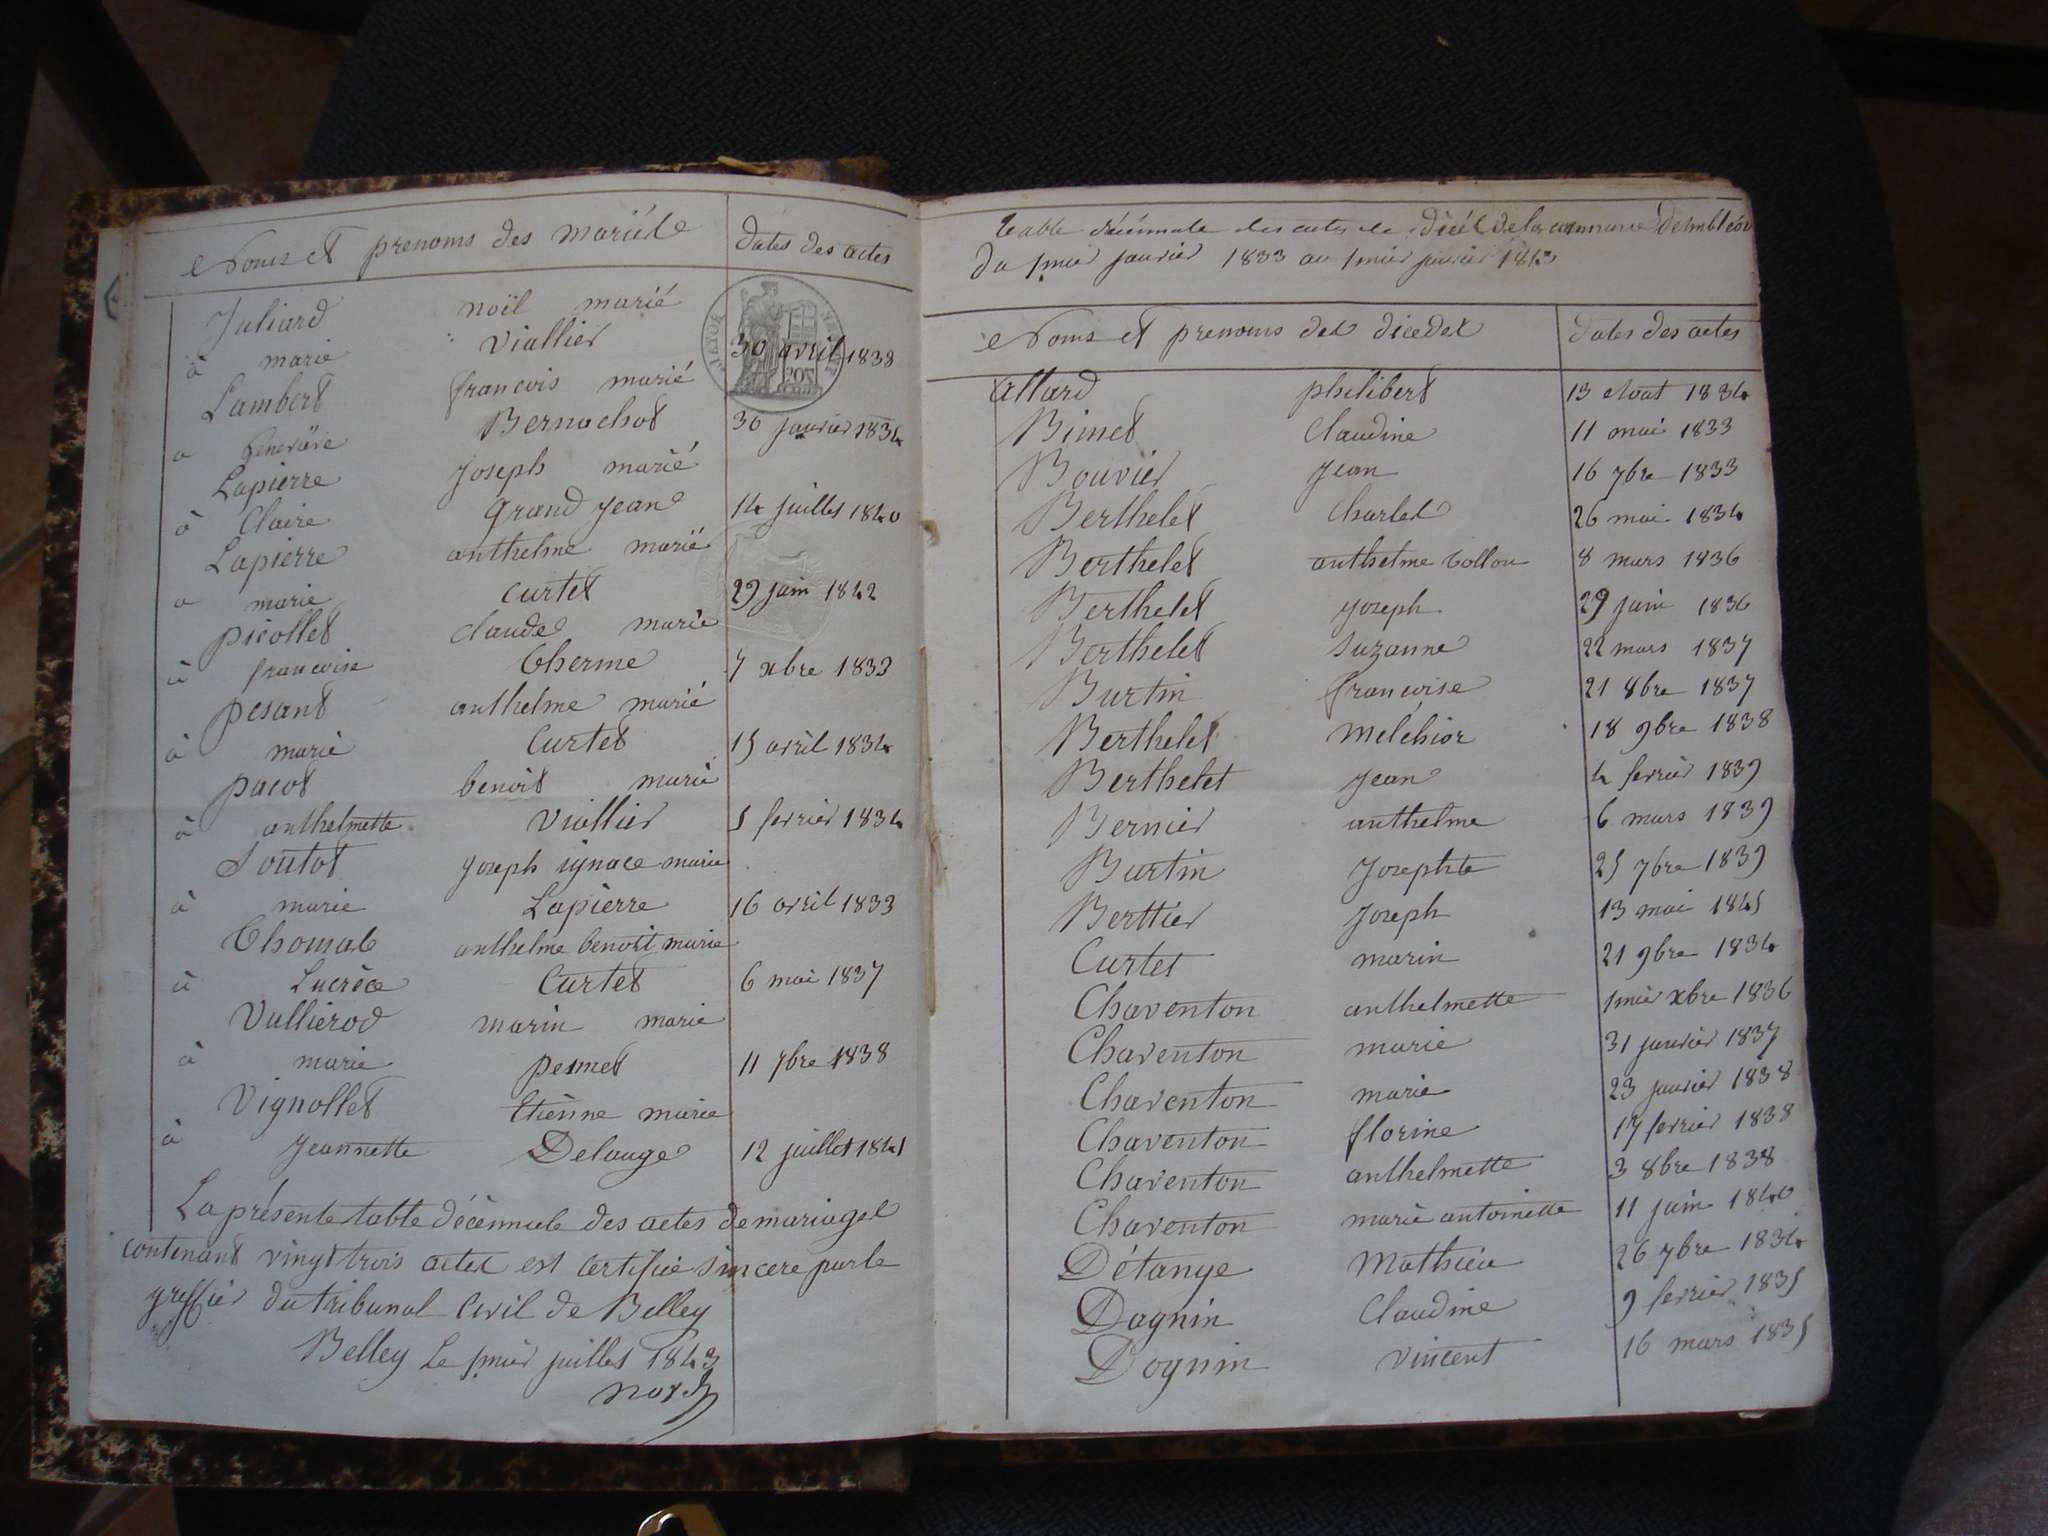 Noms et prenoms des mariés
dates des actes
Juliard noïl marié
à marie Viallier 30 avril 1838
Lambert francois marié
a Bernachot 30 janvier 1834
Lapierre Joseph marié
à Claire Grand jean 14 juillet 1840
Lapierre anthelme marié
a marie Curtet 29 juin 1842
picollet claude marié
à francoise Therme 7 xbre 1833
pesant anthelme marié
à marie Curtet 15 avril 1834
pacot benoit marié
à anthelmette Viallier 5 fevrier 1834
Soutot Joseph ignace marie
à marie Lapierre 16 avril 1833
Thomas anthelme benoit marie
à Lucrèce Curtet 6 mai 1837
Vullierod marin marie
à marie pesmet 11 7bre 1838
Vignollet Etiènne marie
à Jeannette Delange 12 juillet 1841
La présente table décennale des actes de mariages
contenant vingt trois actes est certifié sincere par le
greffier du tribunal Civil de Belley
Belley Le 1mier juillet 1843
table décennale des actes de décès de la commune
du 1mier janvier 1833 au 1mier janvier 1843
Noms et prenoms des décedes
dates des actes
allard philibert 13 Aout 1834
Bimet Claudine 11 mai 1833
Bouvier Jean 16 7bre 1833
Berthelet Charles 26 mai 1834
Berthelet anthelme 8 mars 1836
Berthelet Joseph 29 juin 1836
Berthelet Suzanne 22 mars 1837
Burtin francoise 21 8bre 1837
Berthelet Melchior 18 9bre 1838
Berthelet Jean 4 fevrier 1839
Bernier anthelme 6 mars 1839
Burtin Josephte 25 7bre 1839
Berttier Joseph 13 mai 1841
Curtet marin 21 9bre 1834
Chaventon anthelmette 1mier xbre 1836
Chaventon marie 31 janvier 1837
Chaventon marie 23 janvier 1838
Chaventon florine 17 fevrier 1838
Chaventon anthelmette 3 8bre 1838
Chaventon marie antoinette 11 juin 1840
Détange Mathieu 26 7bre 1834
Dagnin Claudine 9 fevrier 1835
Dognin vincent 16 mars 1835